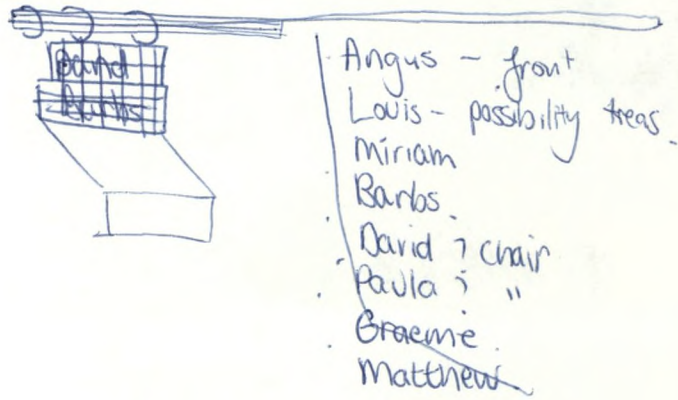 David
Barbs
Angus - front
Louis - possibility treas.
Miriam
Barbs.
David ? chair
Paula ? "
Graeme.
Matthew